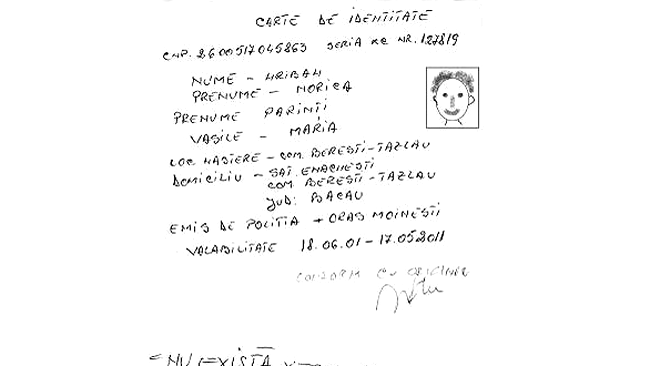 CARTE DE IDENTITATE
CNP. 2600517045863 SERIA KC NR. 127819
NUME - HRIBAN
PRENUME - NORICA
PRENUME PARINTI
VASILE - MARIA
LOC NASTERE - COM. BERESTI-TAZLAU
DOMICILIU - SAT. ENACHESTI
COM. BERESTI-TAZLAU
JUD: BACAU
EMIS DE POLITIA + ORAS MOINESTI
VALABILITATE 18.06.01 - 17.05.2011
CONFORM CU
= NU EXISTĂ